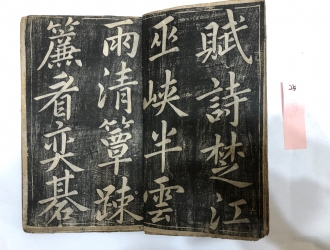 賦詩楚江
巫峽半雲
雨清簟踈
簾看奕碁